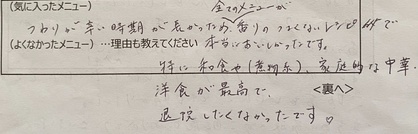 (気に入ったメニュー) 全てのメニューが
つわりが辛い時期が長かったため、香りのつよくないレシピで
(よくなかったメニュー) …理由も教えてください 本当においしかったです。
特に和食や(煮物系)、家庭的な中華、
洋食が最高で、 <裏へ>
退院したくなかったです。